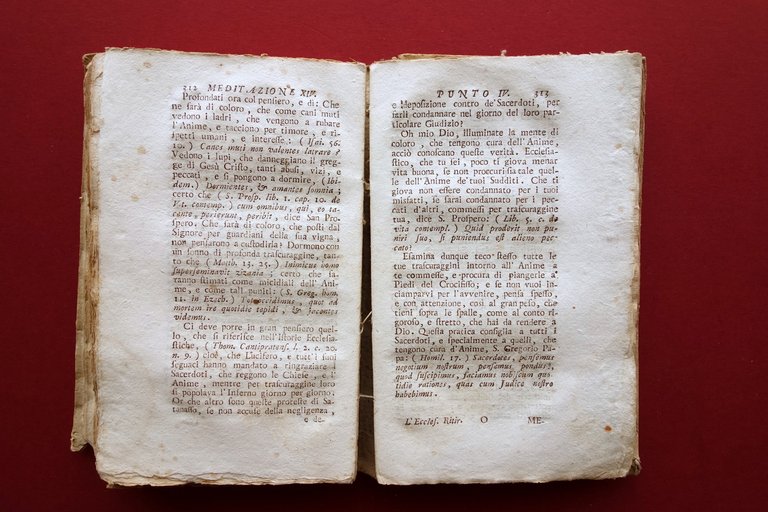 212 MEDITAZIONE XIV.
Profondati ora col pensiero, e di: Che
ne sarà di coloro, che come cani muti
vedono i ladri, che vengono a rubare
l'Anime, e tacciono per timore, e ri-
spetti umani, e interesse: ( Isai. 56.
10. ) Canes muti non valentes latrare?
Vedono i lupi, che danneggiano il greg-
ge di Gesù Cristo, tanti abusi, vizj, e
peccati, e si pongono a dormire, ( Ibi-
dem. ) Dormientes, & amantes somnia;
certo che ( S. Prosp. lib. 1. cap. 10. de
Vt. contemp. ) cum omnibus, qui, eo ta-
cente, perierunt, peribit, dice San Pro-
spero. Che sarà di coloro, che posti dal
Signore per guardiani della sua vigna,
non pensarono a custodirla? Dormono con
un sonno di profonda trascuraggine, tan-
to che ( Matth. 13. 25. ) Inimicus homo
superseminavit zizania; certo che sa-
ranno stimati come micidiali dell'Ani-
me, e come tali puniti: ( S. Greg. hom.
11. in Ezech. ) Tot occidimus, quot ad
mortem ire quotidie tepidi, & tacentes
videmus.
Ci deve porre in gran pensiero quel-
lo, che si riferisce nell'Istorie Ecclesia-
stiche, ( Thom. Cantipratens. l. 2. c. 20.
n. 9. ) cioè, che Lucifero, e tutt'i suoi
seguaci hanno mandato a ringraziare i
Sacerdoti, che reggono le Chiese, e l'
Anime, mentre per trascuraggine loro
si popolava l'Inferno giorno per giorno.
Or che altro sono queste proteste di Sa-
tanasso, se non accuse della negligenza,
e de-
PUNTO IV. 313
e deposizione contro de' Sacerdoti, per
farli condannare nel giorno del loro par-
ticolare Giudizio?
Oh mio Dio, illuminate la mente di
coloro, che tengono cura dell'Anime,
acciò conoscano queste verità. Ecclesia-
stico, che tu sei, poco ti giova menar
vita buona, se non procuri sia tale quel-
le dell'Anime de' tuoi Sudditi. Che ti
giova non essere condannato per i tuoi
misfatti, se sarai condannato per i pec-
cati d'altri, commessi per trascuraggine
tua, dice S. Prospero: ( Lib. 5. c. de
vita contempl. ) Quid proderit non pu-
niri suo, si puniendus est alieno pec-
cato?
Esamina dunque teco stesso tutte le
tue trascuraggini intorno all'Anime a
te commesse, e procura di piangerle a'
Piedi del Crocifisso; e se non vuoi in-
ciamparvi per l'avvenire, pensa spesso,
e con attenzione, così al gran peso, che
tieni sopra le spalle, come al conto ri-
goroso, e stretto, che hai da rendere a
Dio. Questa pratica consiglia a tutti i
Sacerdoti, e specialmente a quelli, che
tengono cura d'Anime, S. Gregorio Pa-
pa: ( Homil. 17. ) Sacerdotes, pensemus
negotium nostrum, pensemus pondus,
quod suscipimus, faciamus nobiscum quo-
tidie rationes, quas cum Judice nostro
habebimus.
L'Eccles. Ritir. O ME-